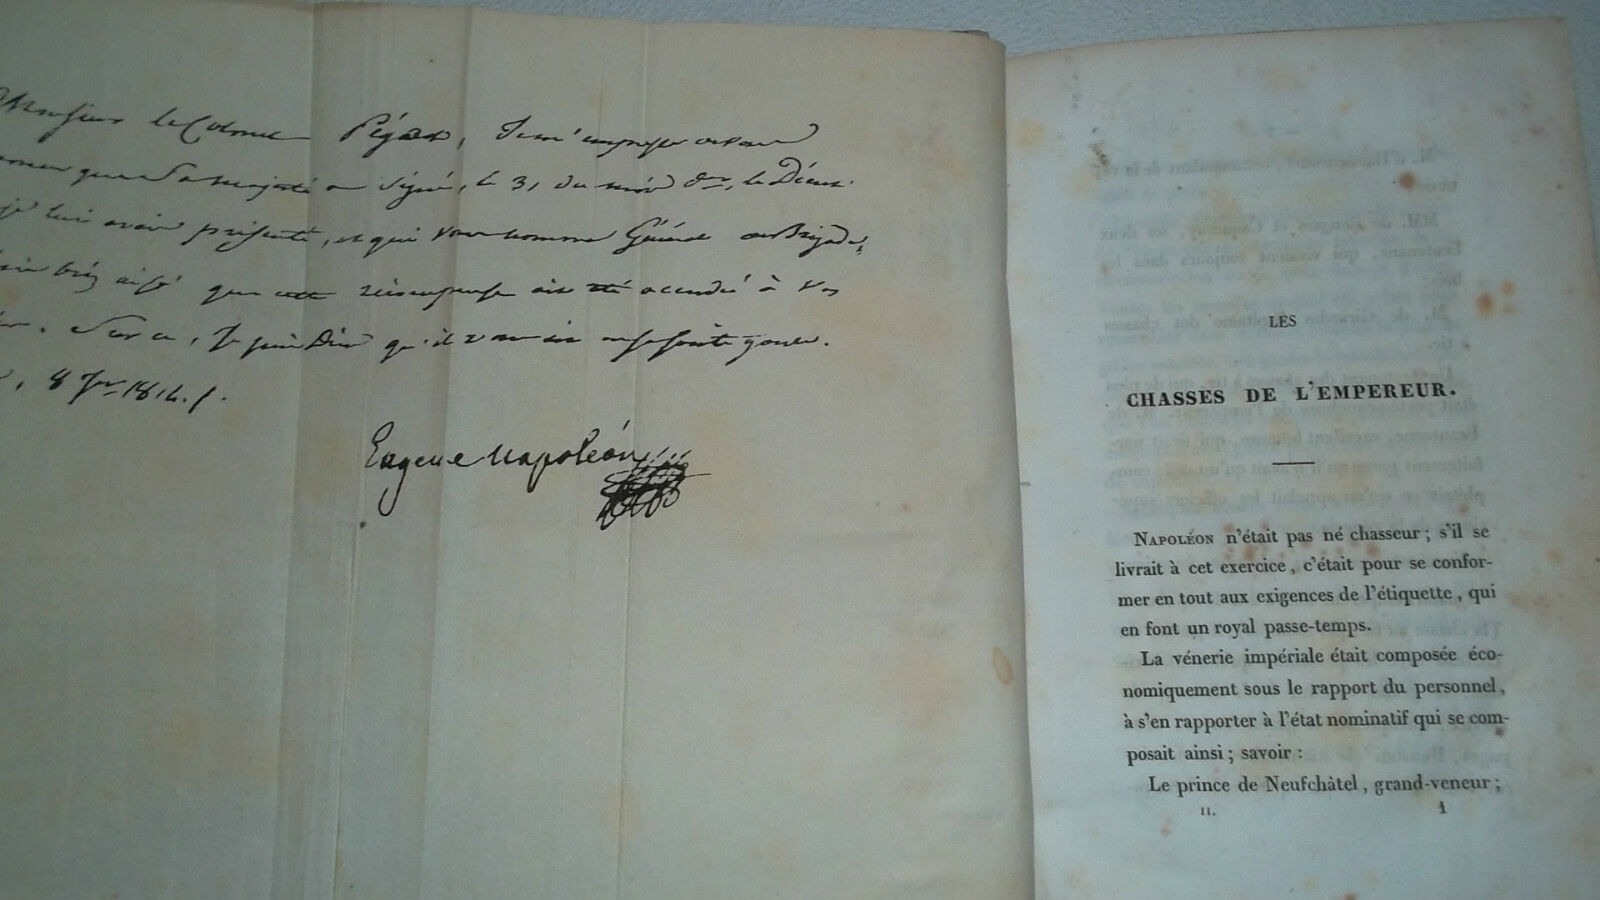 Monsieur le Colonel Pégot, Je m'empresse de vous
que Sa Majesté a signé, le 31 du mois dr., le Décret
je lui avais présenté, et qui vous nomme Général de Brigade,
bien aise que cette récompense ait été accordée à vos
Sur ce, Je prie Dieu qu'il vous ait en sa sainte garde.
8 1814.
Eugene Napoléon
LES
CHASSES DE L'EMPEREUR.
NAPOLÉON n'était pas né chasseur ; s'il se
livrait à cet exercice, c'était pour se confor-
mer en tout aux exigences de l'étiquette, qui
en font un royal passe-temps.
La vénerie impériale était composée éco-
nomiquement sous le rapport du personnel,
à s'en rapporter à l'état nominatif qui se com-
posait ainsi ; savoir :
Le prince de Neufchâtel, grand-veneur ;
II. 1